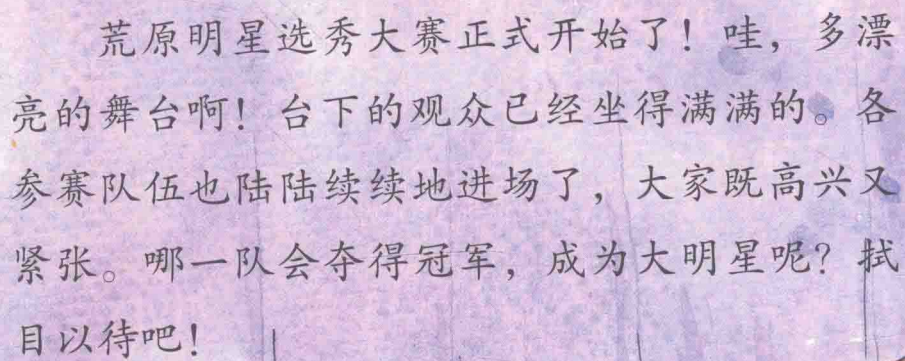 荒原明星选秀大赛正式开始了！哇，多漂
亮的舞台啊！台下的观众已经坐得满满的。各
参赛队伍也陆陆续续地进场了，大家既高兴又
紧张。哪一队会夺得冠军，成为大明星呢？拭
目以待吧！